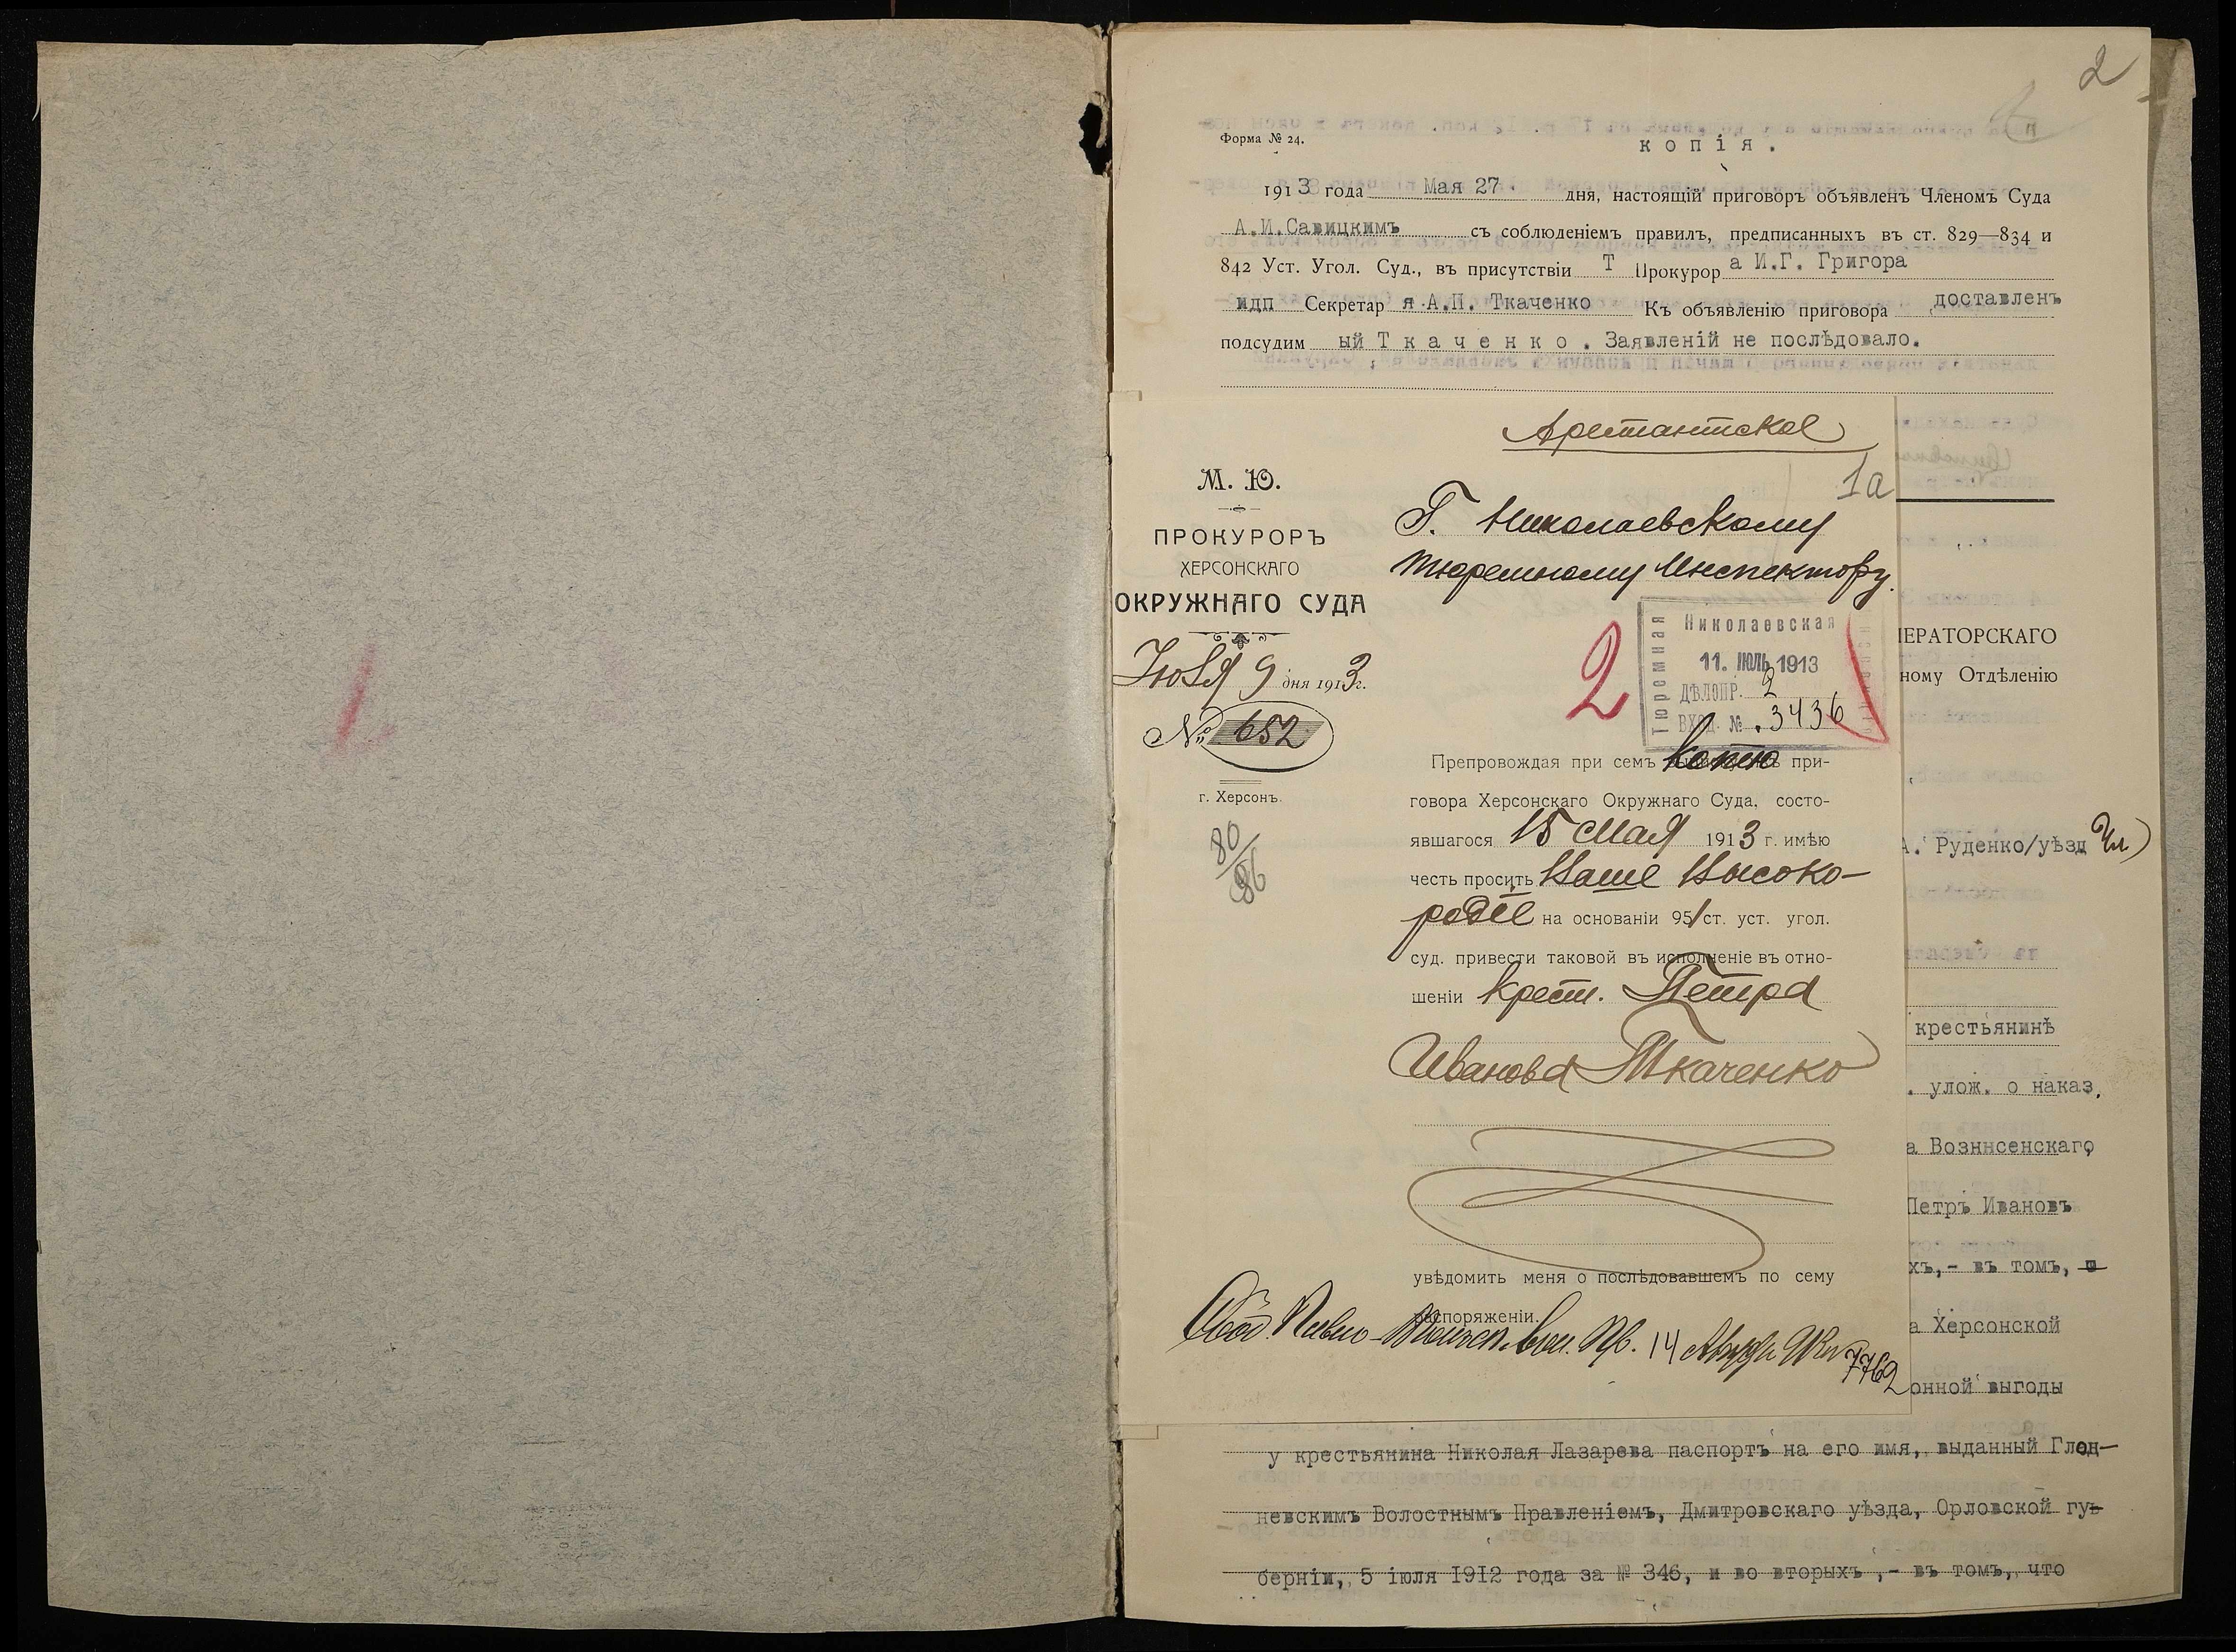 2
Форма № 24.
копія.
1913 года Мая 27. дня, настоящій приговоръ объявленъ Членомъ Суда
А.И.Савицкимъ съ соблюденіемъ правилъ, предписанныхъ въ ст. 829—834 и
842 Уст. Угол. Суд., въ присутствіи Т Прокурор а И.Г. Григора
идп Секретар я А.П. Ткаченко Къ объявленію приговора доставленъ
подсудим ый Ткаченко. Заявленій не послѣдовало.
Арестантское
1а
М. Ю.
ПРОКУРОРЪ
ХЕРСОНСКАГО
ОКРУЖНАГО СУДА
Іюля 9 дня 1913г.
№ 652
г. Херсонъ.
80
86
Г. Николаевскому
Тюремному Инспектору.
2
Николаевская
Тюремная
11. ИЮЛЬ 1913
ДѢЛОПР. 2
ВХОД. № 3436
Препровождая при семъ копію при-
говора Херсонскаго Окружнаго Суда, состо-
явшагося 15 Мая 1913 г. имѣю
честь просить Ваше Высоко-
родіе на основаніи 951 ст. уст. угол.
суд. привести таковой въ исполненіе въ отно-
шеніи крест. Петра
Иванова Ткаченко
увѣдомить меня о послѣдовавшемъ по сему
распоряженіи.
14
7762
ІЕРАТОРСКАГО
ному Отдѣленію
А. Руденко/уѣзд Чл)
крестьянинѣ
. улож. о наказ.
а Вознnсенскаго
Петръ Ивановъ
хъ,- въ томъ,
а Херсонской
онной выгоды
у крестьянина Николая Лазарева паспортъ на его имя, выданный Глод-
невскимъ Волостнымъ Правленіемъ, Дмитровскаго уѣзда, Орловской гу-
берніи, 5 іюля 1912 года за № 346, и во вторыхъ,- въ томъ, что